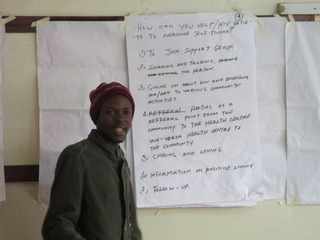 HOW CAN YOU HELP/HIV
TO OVERCOME SELF-STIGMA?
TO JOIN SUPPORT GROUP
SHARING AND TALKING,
THE PERSON.
GIVING ON ABOUT HIV AND
TO VARIOUS COMMUNITY
ACTIVITIES
REFERRAL AS A
REFERRAL POINT FROM THE
COMMUNITY TO THE HEALTH CENTRE
VICE-VERSA HEALTH CENTRE TO
THE COMMUNITY.
CARING AND LOVING.
INFORMATION ON POSITIVE LIVING
FOLLOW-UP.